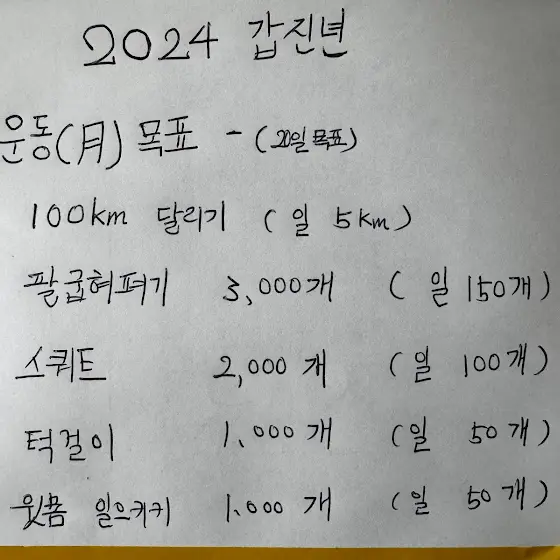 2024 갑진년
운동(月) 목표 - (20일 목표)
100km 달리기 (일 5km)
팔굽혀펴기 3,000개 (일 150개)
스쿼트 2,000개 (일 100개)
턱걸이 1,000개 (일 50개)
윗몸 일으키키 1,000개 (일 50개)